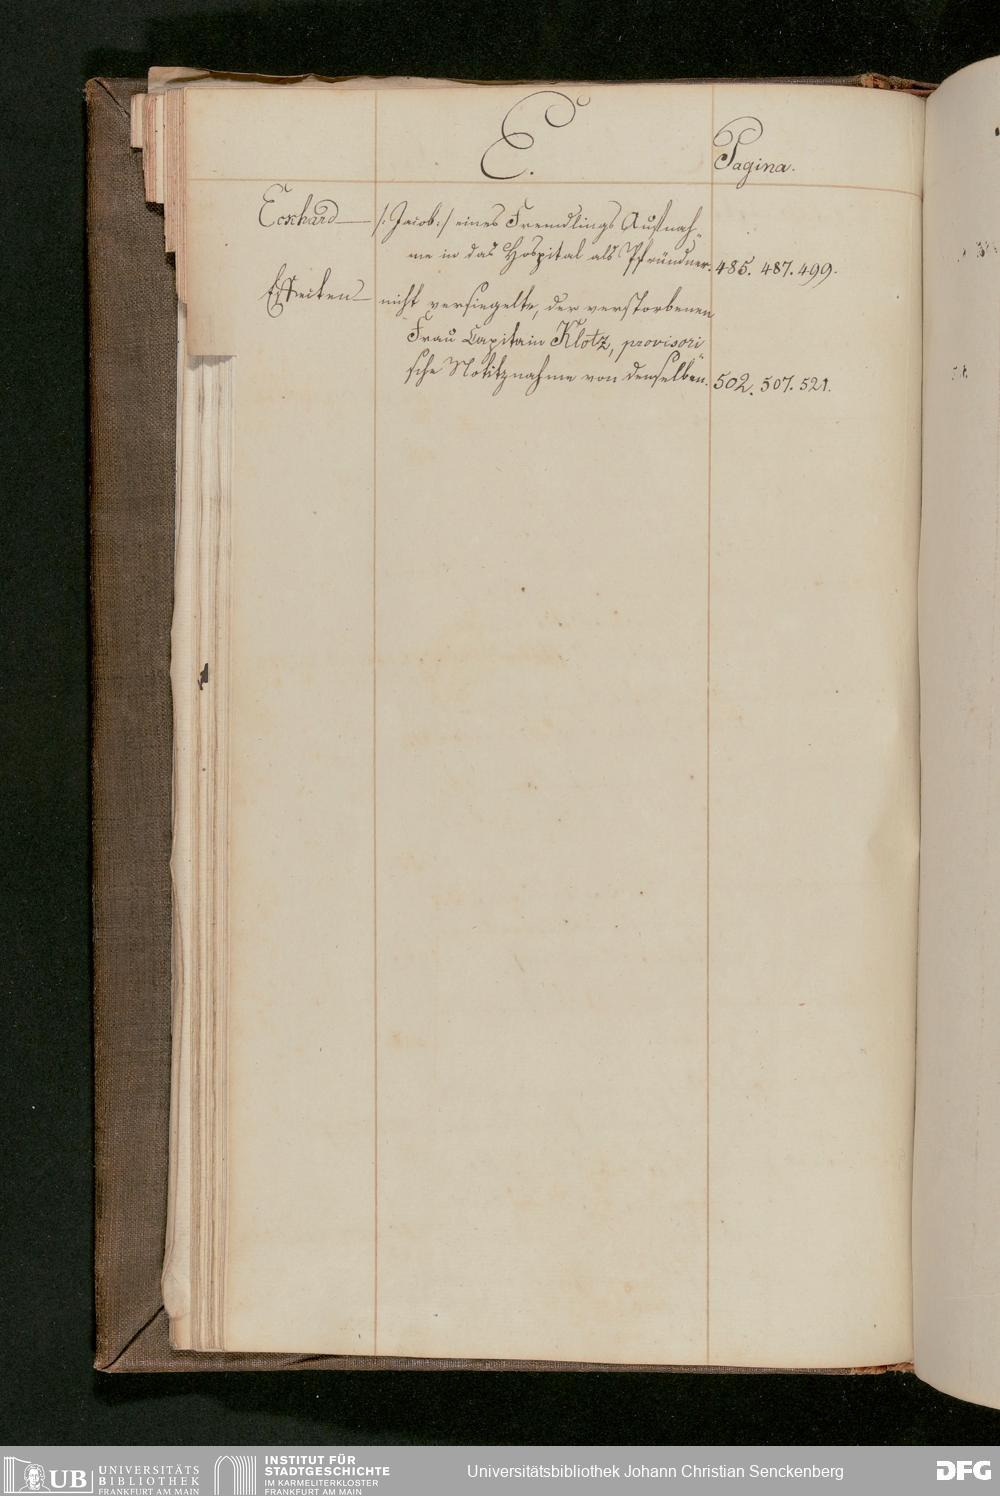 E.
Pagina.
Eckhard — /: Jacob :/ eines Fremdlings Aufnah-
me in das Hospital als Pfründner. 485. 487. 499.
Effecten — nicht versiegelte, der verstorbenen
Frau Capitain Klotz, provisori-
sche Notitznahme von denselben. 502. 507. 521.
UB UNIVERSITÄTS
BIBLIOTHEK
FRANKFURT AM MAIN
INSTITUT FÜR
STADTGESCHICHTE
IM KARMELITERKLOSTER
FRANKFURT AM MAIN
Universitätsbibliothek Johann Christian Senckenberg
DFG